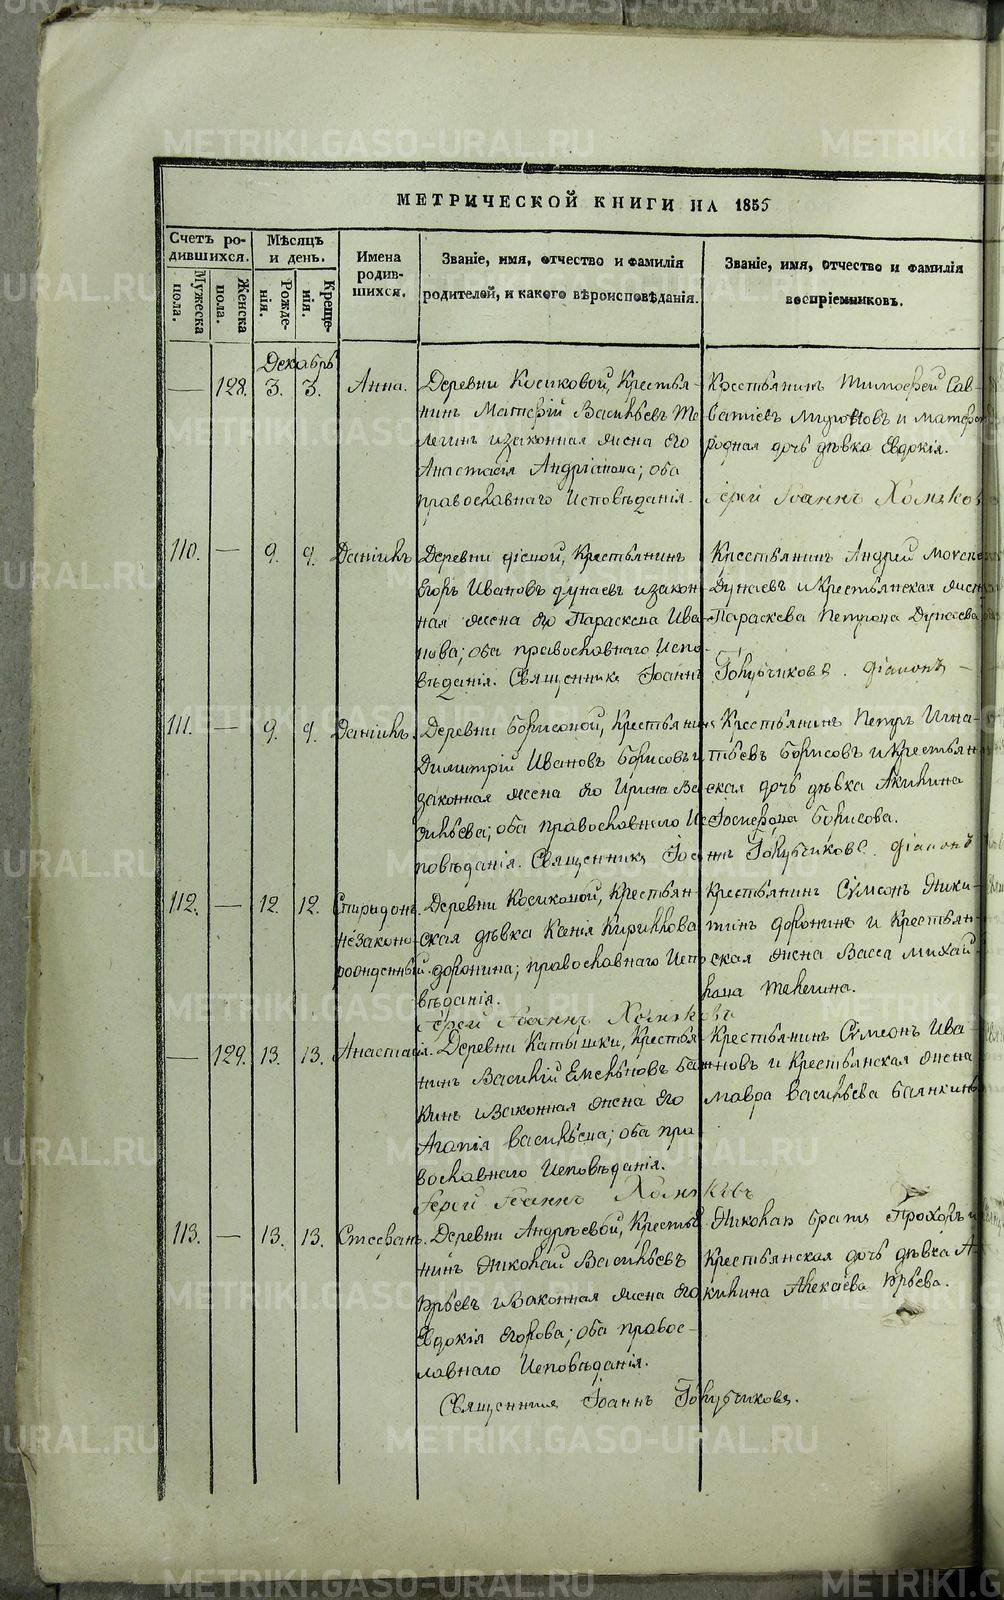 МЕТРИЧЕСКОЙ КНИГИ НА 1855
Счетъ ро-
дившихся.
Мѣсяцъ
и день.
Имена
родив-
шихся.
Званіе, имя, отчество и фамилія
родителей, и какого вѣроисповѣданія.
Званіе, имя, отчество и фамилія
воспріемниковъ.
Мужеска
пола.
Женска
пола.
Рожде-
нія.
Креще-
нія.
Декабрь
— 128. 3. 3. Анна.
Деревни Косиковой, Крестья-
нинъ Матѳій Васильевъ Те-
легинъ и законная жена его
Анастасія Андріанова; оба
православнаго Исповѣданія.
Крестьянинъ Тимоѳей Сав-
ватіевъ и
родная дочь дѣвка Евдокія.
Іерей Іоаннъ Хомяковъ
110. — 9. 9. Даніилъ
Деревни Крестьянинъ
Егоръ Ивановъ Дунаевъ и закон-
ная жена его Параскева Ива-
нова; оба православнаго Испо-
вѣданія. Священникъ Іоаннъ Голубчиковъ. Діаконъ —
Крестьянинъ Андрей
Дунаевъ и Крестьянская жена
Параскева Петрова Дунаева
111. — 9. 9. Даніилъ.
Деревни Борисовой, Крестьянинъ
Димитрій Ивановъ Борисовъ и
законная жена его Ирина Ва-
сильева; оба православнаго Ис-
повѣданія. Священникъ Іоаннъ Голубчиковъ. Діаконъ
Крестьянинъ Петръ Игна-
тьевъ Борисовъ и Крестьян-
ская дочь дѣвка Акилина
Борисова.
112. — 12. 12. Спиридонъ
незаконо-
рожденный.
Деревни Косиковой, Крестьян-
ская дѣвка Ксенія Кириллова
Доронина; православнаго Испо-
вѣданія.
Іерей Іоаннъ Хомяковъ
Крестьянинъ Сѵмеонъ Ники-
тинъ Доронинъ и Крестьян-
ская жена Васса Михай-
лова Телегина.
— 129. 13. 13. Анастасія.
Деревни Катышки, Крестья-
нинъ Василій Емельяновъ Баян-
кинъ и Законная жена его
Агапія Васильева; оба пра-
вославнаго Исповѣданія.
Іерей Іоаннъ Хомяковъ
Крестьянинъ Сѵмеонъ Ива-
новъ и Крестьянская жена
Мавра Васильева Баянкинъ
113. — 13. 13. Стефанъ.
Деревни Андреевой, Крестья-
нинъ Николай Васильевъ
Юрьевъ и Законная жена его
Евдокія Егорова; оба право-
славнаго Исповѣданія.
Священникъ Іоаннъ Голубчиковъ.
Николая братъ Прохоръ и
Крестьянская дочь дѣвка А-
килина Алексѣева Юрьева.
METRIKI.GASO-URAL.RU